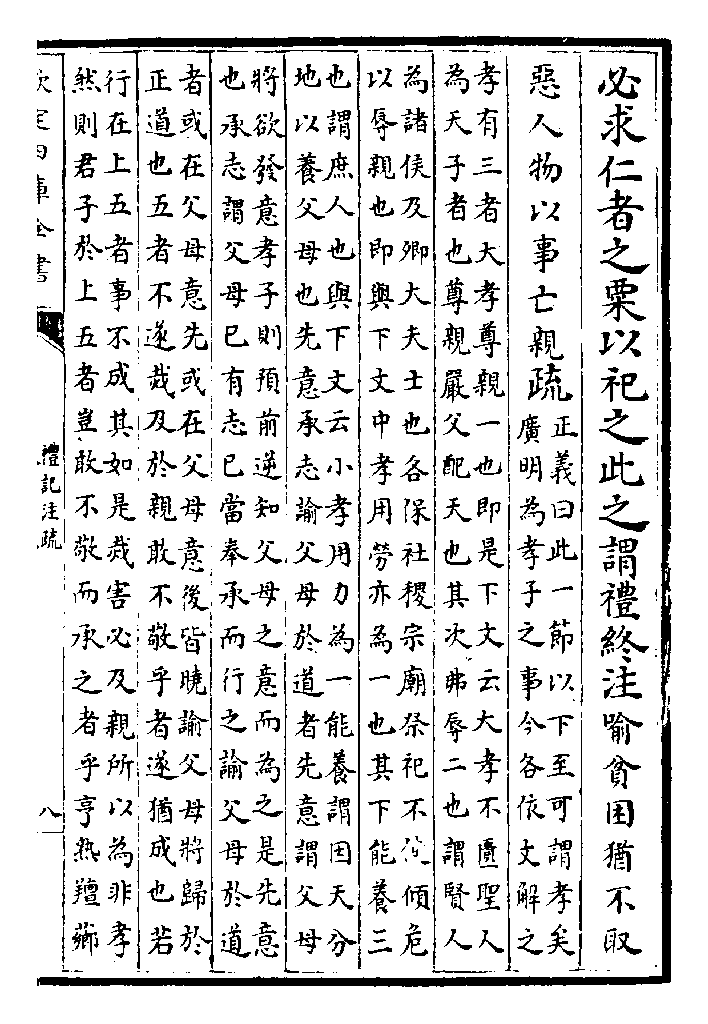 必求仁者之粟以祀之此之謂禮終注喻貧困猶不取
惡人物以事亡親疏
正義曰此一節以下至可謂孝矣
廣明為孝子之事今各依文解之
孝有三者大孝尊親一也即是下文云大孝不匱聖人
為天子者也尊親嚴父配天也其次弗辱二也謂賢人
為諸侯及卿大夫士也各保社稷宗廟祭祀不使傾危
以辱親也即與下文中孝用勞亦為一也其下能養三
也謂庶人也與下文云小孝用力為一能養謂因天分
地以養父母也先意承志諭父母於道者先意謂父母
將欲發意孝子則預前逆知父母之意而為之是先意
也承志謂父母已有志已當奉承而行之諭父母於道
者或在父母意先或在父母意後皆曉諭父母將歸於
正道也五者不遂烖及於親敢不敬乎者遂猶成也若
行在上五者事不成其如是烖害必及親所以為非孝
然則君子於上五者豈敢不敬而承之者乎亨熟羶薌
欽定四庫全書
禮記注疏
八